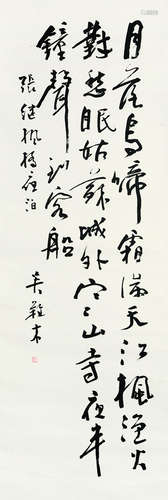 月落烏啼霜滿天江楓漁火
對愁眠姑蘇城外寒山寺夜半
鐘聲到客船
張繼楓橋夜泊
吳木